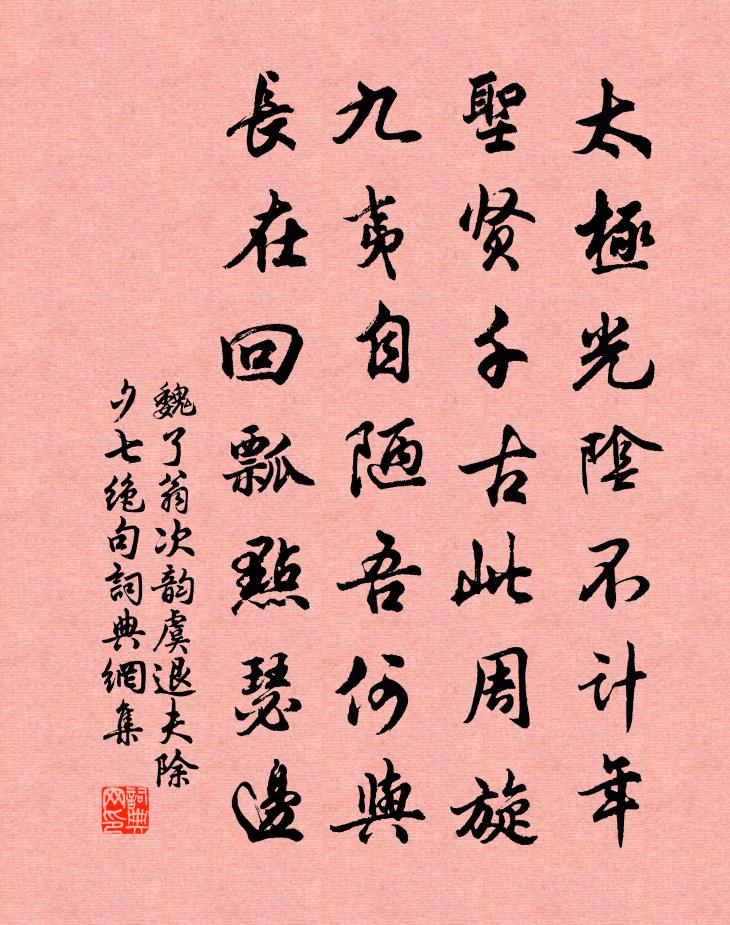 太極光陰不計年
聖贤千古此周旋
九夷自陋吾何與
長在回瓢點瑟邊
魏了翁次韵虞退夫除
夕七绝句詞典網集
詞典
网印